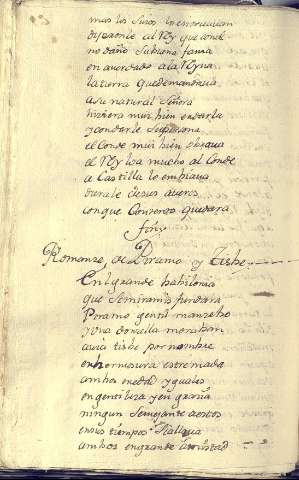 mas los suios lo
dixeronle al Rey que conde
no daño su buena fama
en aver dado a la Reyna
la tierra que demandava
a su natural Señora
hiziera muy bien en darla
y con darle su persona
el Conde muy bien obrava
el Rey loa mucho al Conde
a Castilla lo embiava
darale de sus averes
con que Contento quedara
fin
Romanze, de Piramo y Tisbe
En la grande babilonia
que Semiramis fundara
Piramo gentil mancebo
y una donzella moraban
avia tisbe por nombre
en hermosura estremada
ambos en edad yguales
en gentileza y en gracia
ningun Semejante a estos
en sus tiempos se hallava
ambos en grande amistad